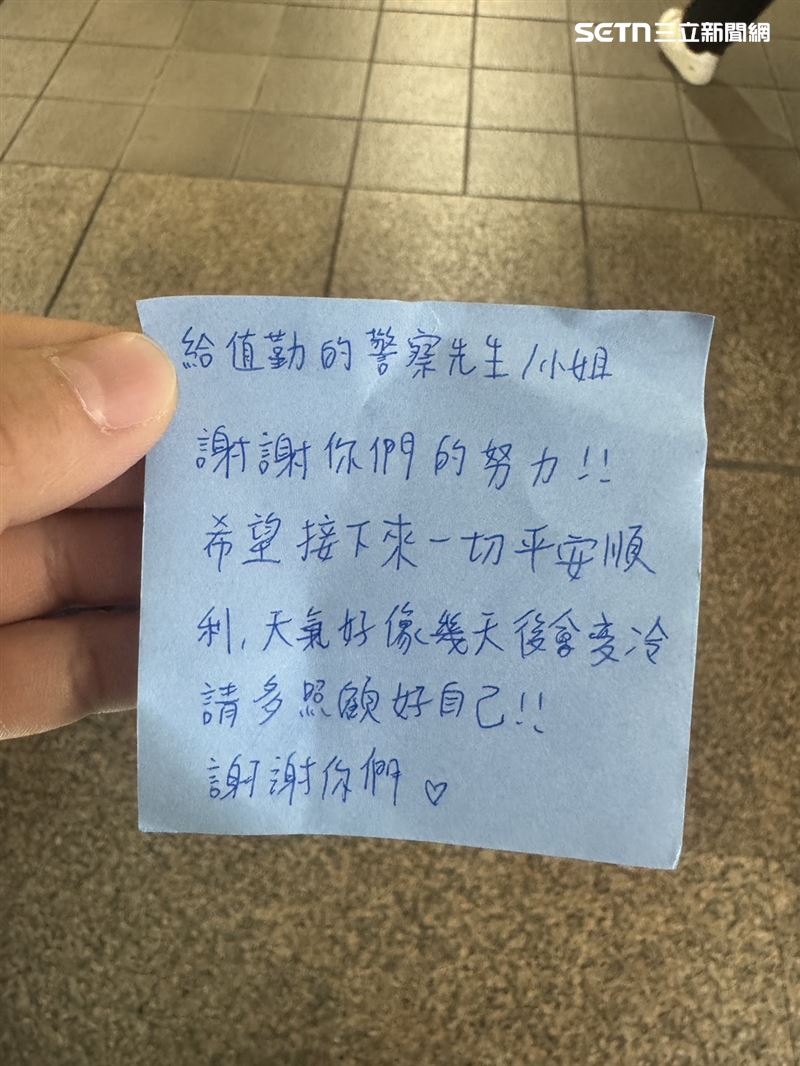 SETN三立新聞網
給值勤的警察先生/小姐
謝謝你們的努力!!
希望接下來一切平安順
利,天氣好像幾天後會变冷
請多照顧好自己!!
謝謝你們♡